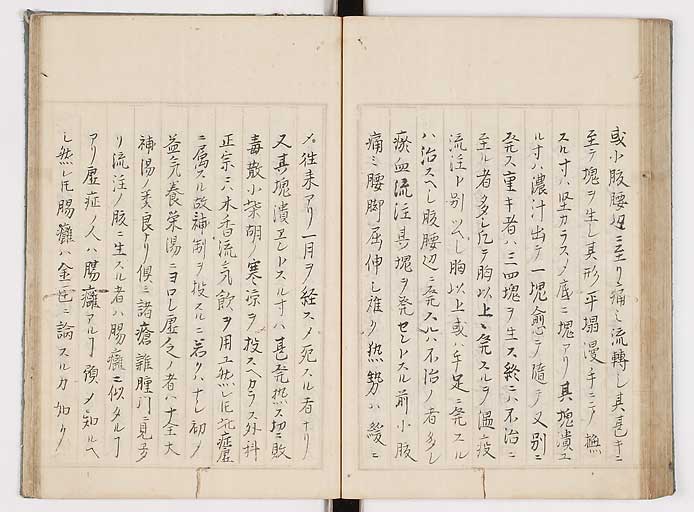 或小腹腰辺ニ至リ痛ミ流轉シ其甚キニ
至テ塊ヲ生シ其形平塌漫手ニシテ撫
スル寸ハ坚カラスメ底ニ塊アリ其塊潰ユ
ル寸ハ濃汁出テ一塊愈テ随テ又別ニ
発ス重キ者ハ三四塊ヲ生ス終ニハ不治ニ
至ル者多シ凡テ胸以上ニ発スルヲ温疫
流注ト別ツヘシ胸以上或ハ手足ニ発スル
ハ治スヘシ腹腰辺ニ発スルハ不治ノ者多シ
瘀血流注其塊ヲ発セントスル前小腹
痛ミ腰脚屈伸シ難ク熱勢ハ緩ニ
メ往来アリ一月ヲ経スメ死スル者ナリ
又其塊潰エントスル寸ハ甚発热ス切ニ敗
毒散小柴胡ノ寒涼ヲ投スヘカラス外科
正宗ニハ木香流気飲ヲ用ユ然レ𪜈元虚
ニ属スル故補剤ヲ投スルニ若クハナシ初メ
益気養栄湯ニヨロシ虚乏ノ者ハ十全大
補湯ノ委良ヨリ倶ニ諸瘡雜腫門ニ見多
リ流注ノ腹ニ生スル者ハ腸癰ニ似タルヿ
アリ虚症ノ人ハ腸癰アルヿ預メ知ルヘ
シ然レ𪜈腸癰ハ金匱ニ論スルカ如ク